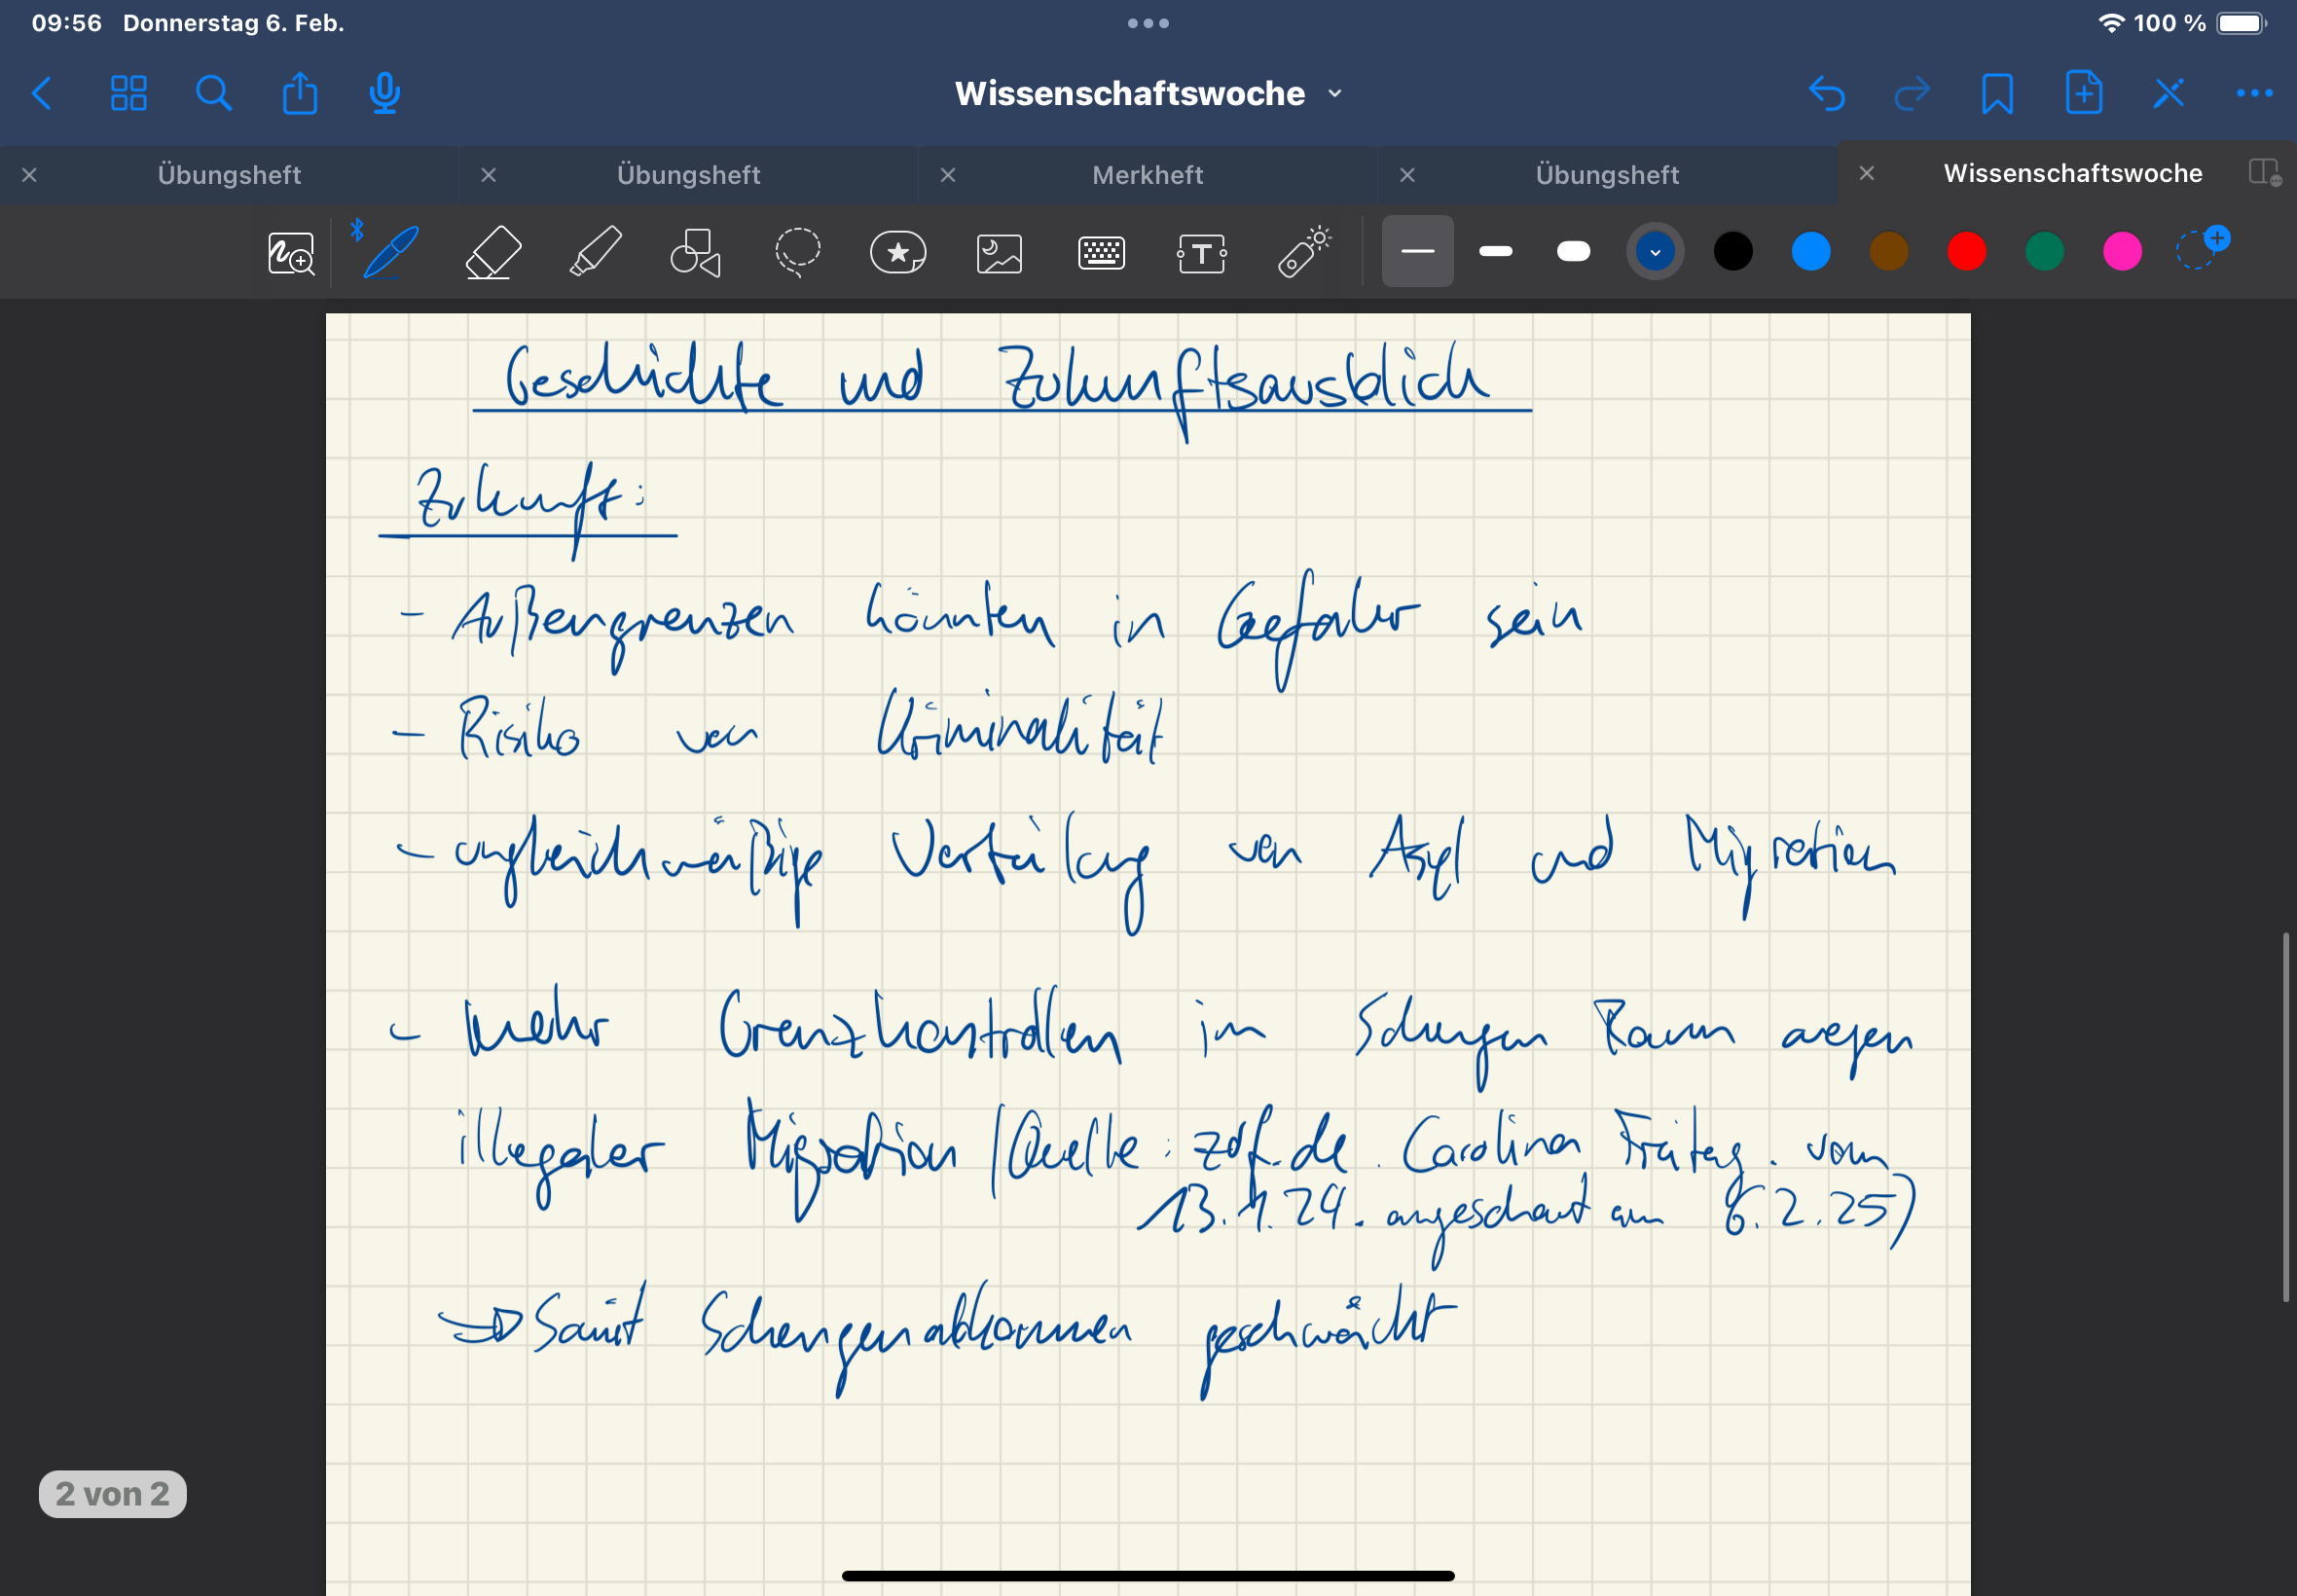 09:56 Donnerstag 6. Feb. 100 %
Wissenschaftswoche
Übungsheft Übungsheft Merkheft Übungsheft Wissenschaftswoche
T
Geschichte und Zukunftsausblick
Zukunft:
- Außengrenzen könnten in Gefahr sein
- Risiko von Kriminalität
- ungleichmäßige Verteilung von Asyl und Migration
- mehr Grenzkontrollen im Schengen Raum wegen
illegaler Migration (Quelle: zdf.de. Carolina Freitag. vom
13.9.24. angeschaut am 6.2.25)
→ Somit Schengenabkommen geschwächt
2 von 2